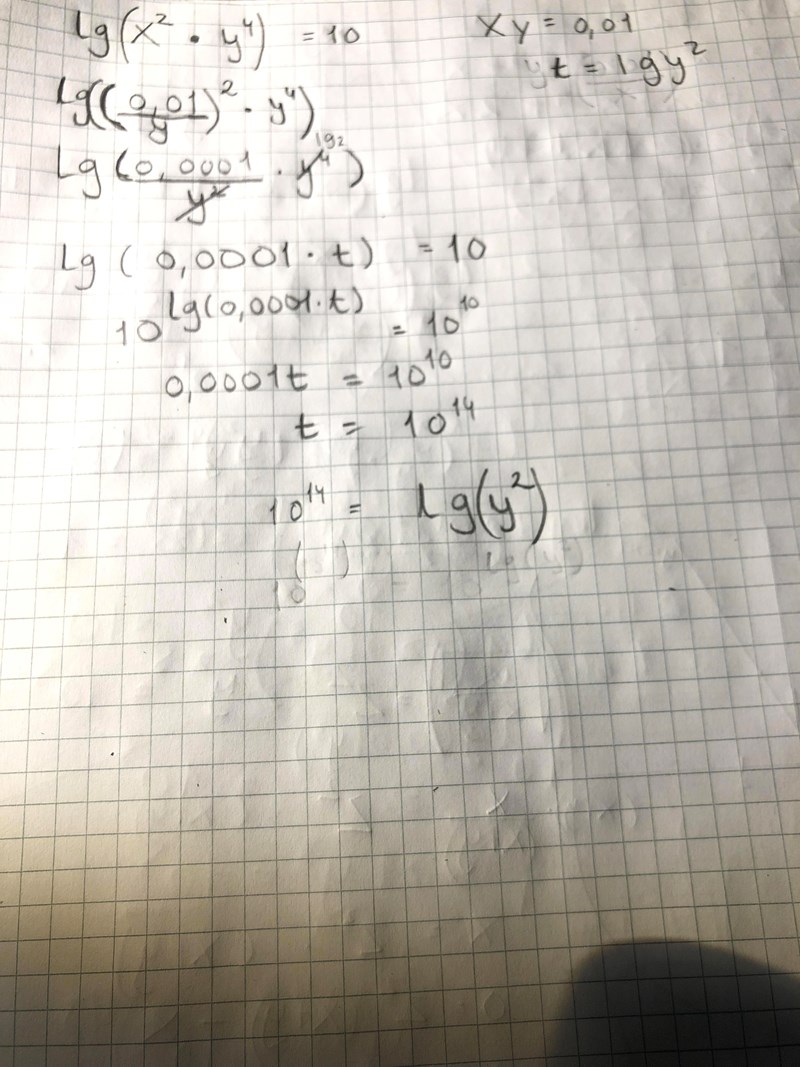 lg(x² · y⁴) = 10
xy = 0,01
t = lg y²
lg((0,01/y)² · y⁴)
lg(0,0001/y² · y⁴ lg2)
lg(0,0001 · t) = 10
10^lg(0,0001·t) = 10¹⁰
0,0001t = 10¹⁰
t = 10¹⁴
10¹⁴ = lg(y²)
10